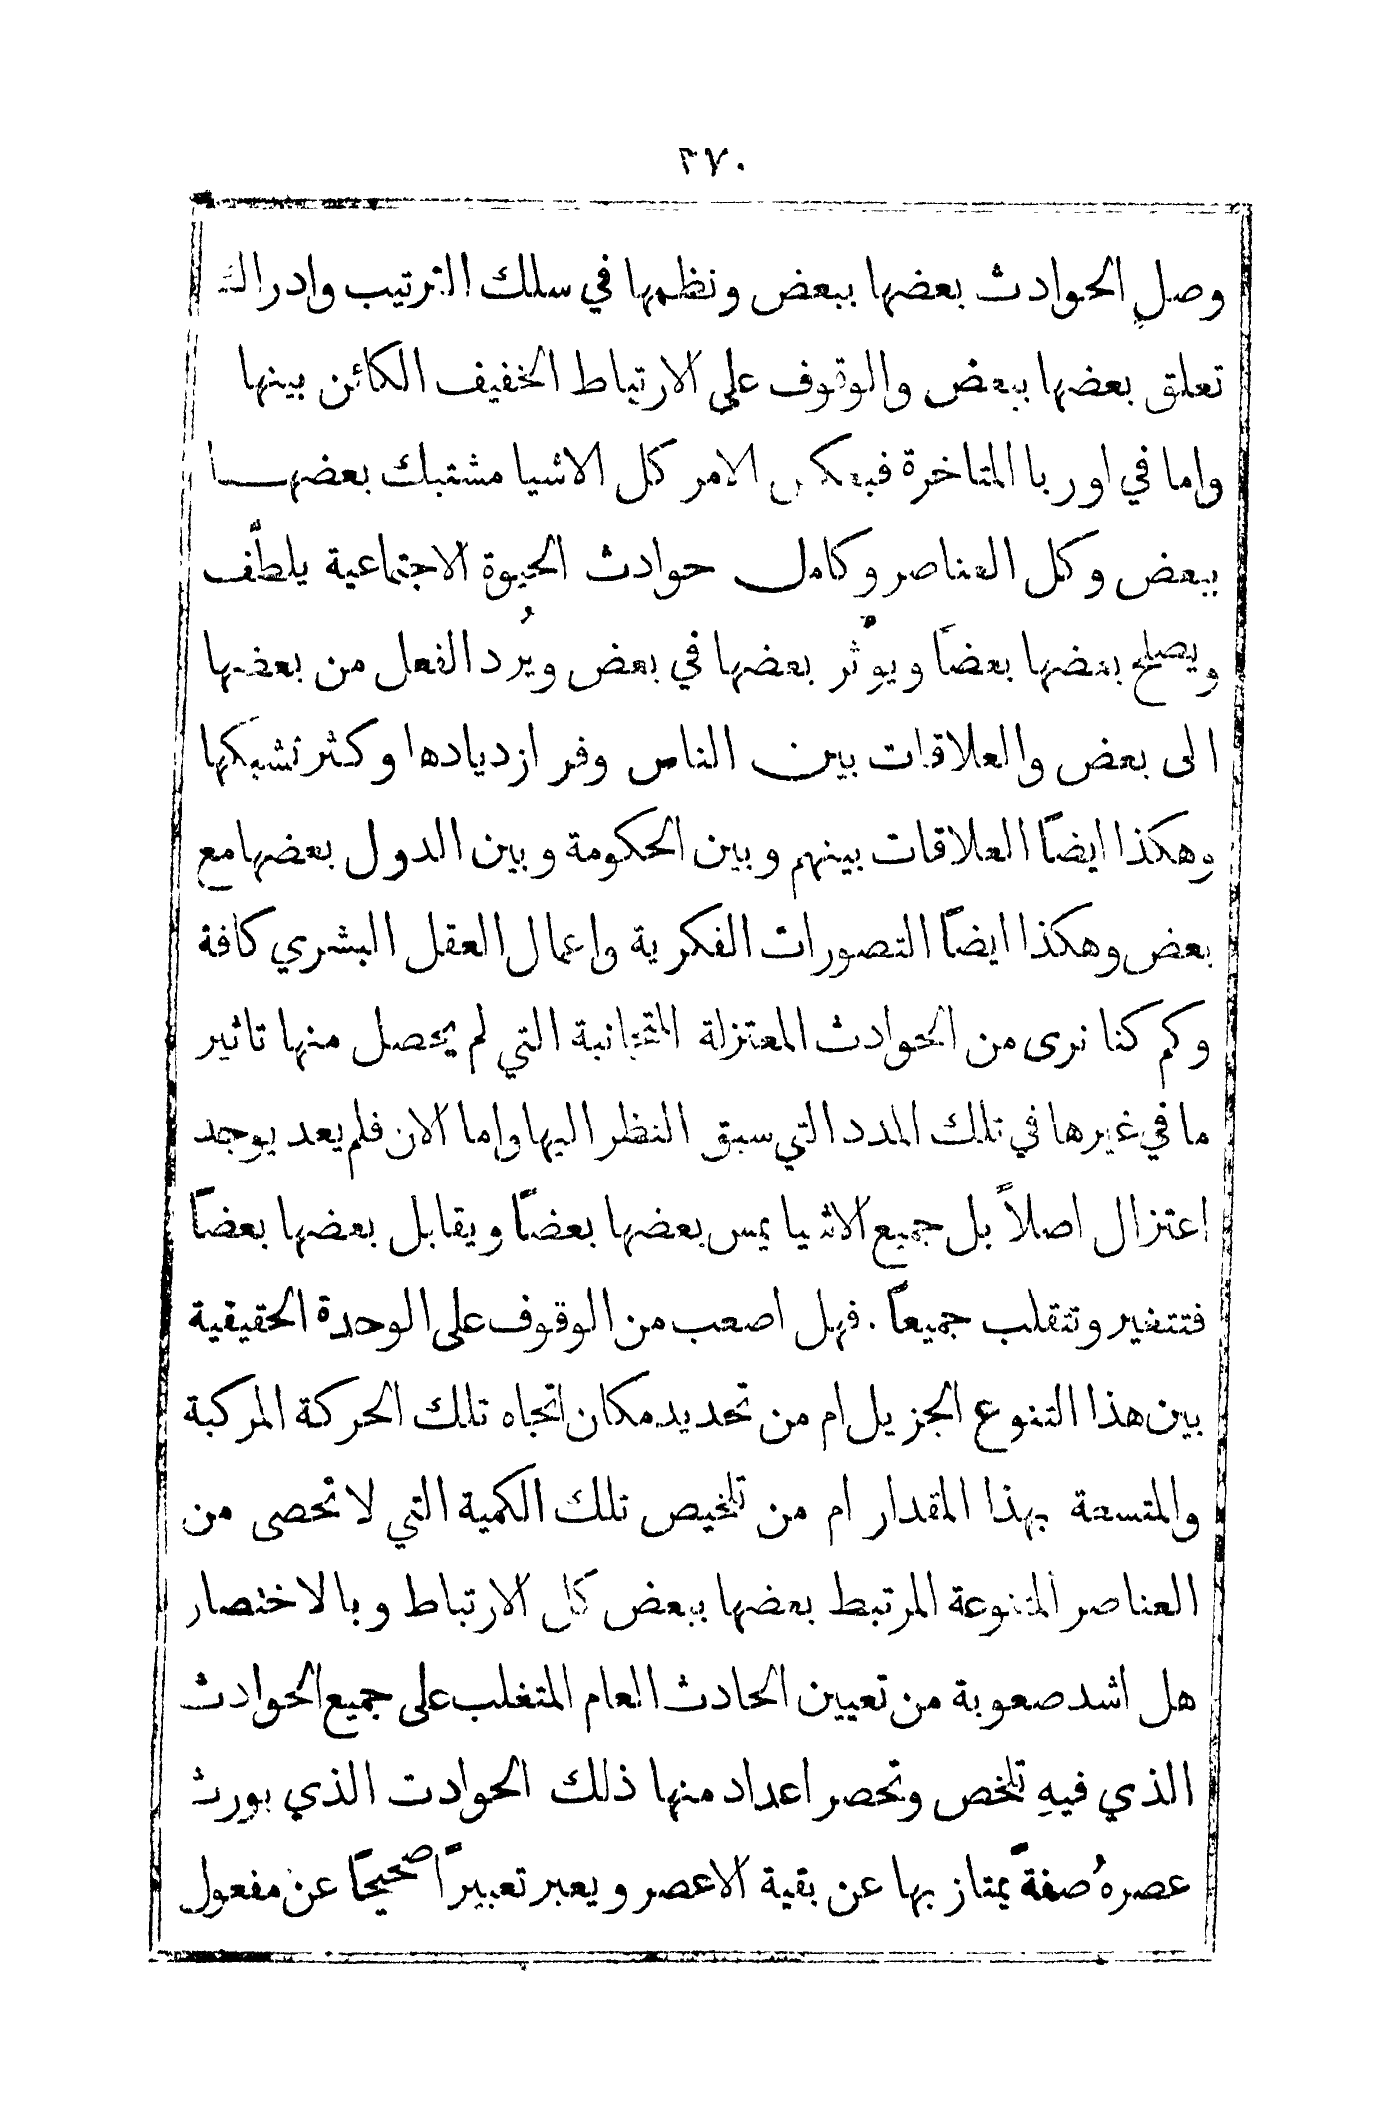 ٣٧٠
وصل الحوادث بعضها ببعض ونظمها في سلك الترتيب وادراك
تعلق بعضها ببعض والوقوف على الارتباط الخفيف الكائن بينها
واما في اوربا المتاخرة فبعكس الامر كل الاشيا مشتبك بعضها
ببعض وكل العناصر وكامل حوادث الحيوة الاجتماعية يلطّف
ويصلح بعضها بعضاً ويوثّر بعضها في بعض ويُرد الفعل من بعضها
الى بعض والعلاقات بين الناس وفر ازديادها وكثر تشبكها
وهكذا ايضاً العلاقات بينهم وبين الحكومة وبين الدول بعضها مع
بعض وهكذا ايضاً التصورات الفكرية واعمال العقل البشري كافة
وكم كنا نرى من الحوادث المعتزلة المتجانبة التي لم يحصل منها تاثير
ما في غيرها في تلك المدد التي سبق النظر اليها واما الان فلم يعد يوجد
اعتزال اصلاً بل جميع الاشيا يمس بعضها بعضاً ويقابل بعضها بعضاً
فتتغير وتتقلب جميعاً . فهل اصعب من الوقوف على الوحدة الحقيقية
بين هذا التنوع الجزيل ام من تحديد مكان اتجاه تلك الحركة المركبة
والمتسعة بهذا المقدار ام من تلخيص تلك الكمية التي لا تحصى من
العناصر المتنوعة المرتبط بعضها ببعض كل الارتباط وبالاختصار
هل اشد صعوبة من تعيين الحادث العام المتغلب على جميع الحوادث
الذي فيهِ تلخص وتحصر اعداد منها ذلك الحوادت الذي يورث
عصرهُ صفةً يمتاز بها عن بقية الاعصر ويعبر تعبيراً صحيحاً عن مفعول